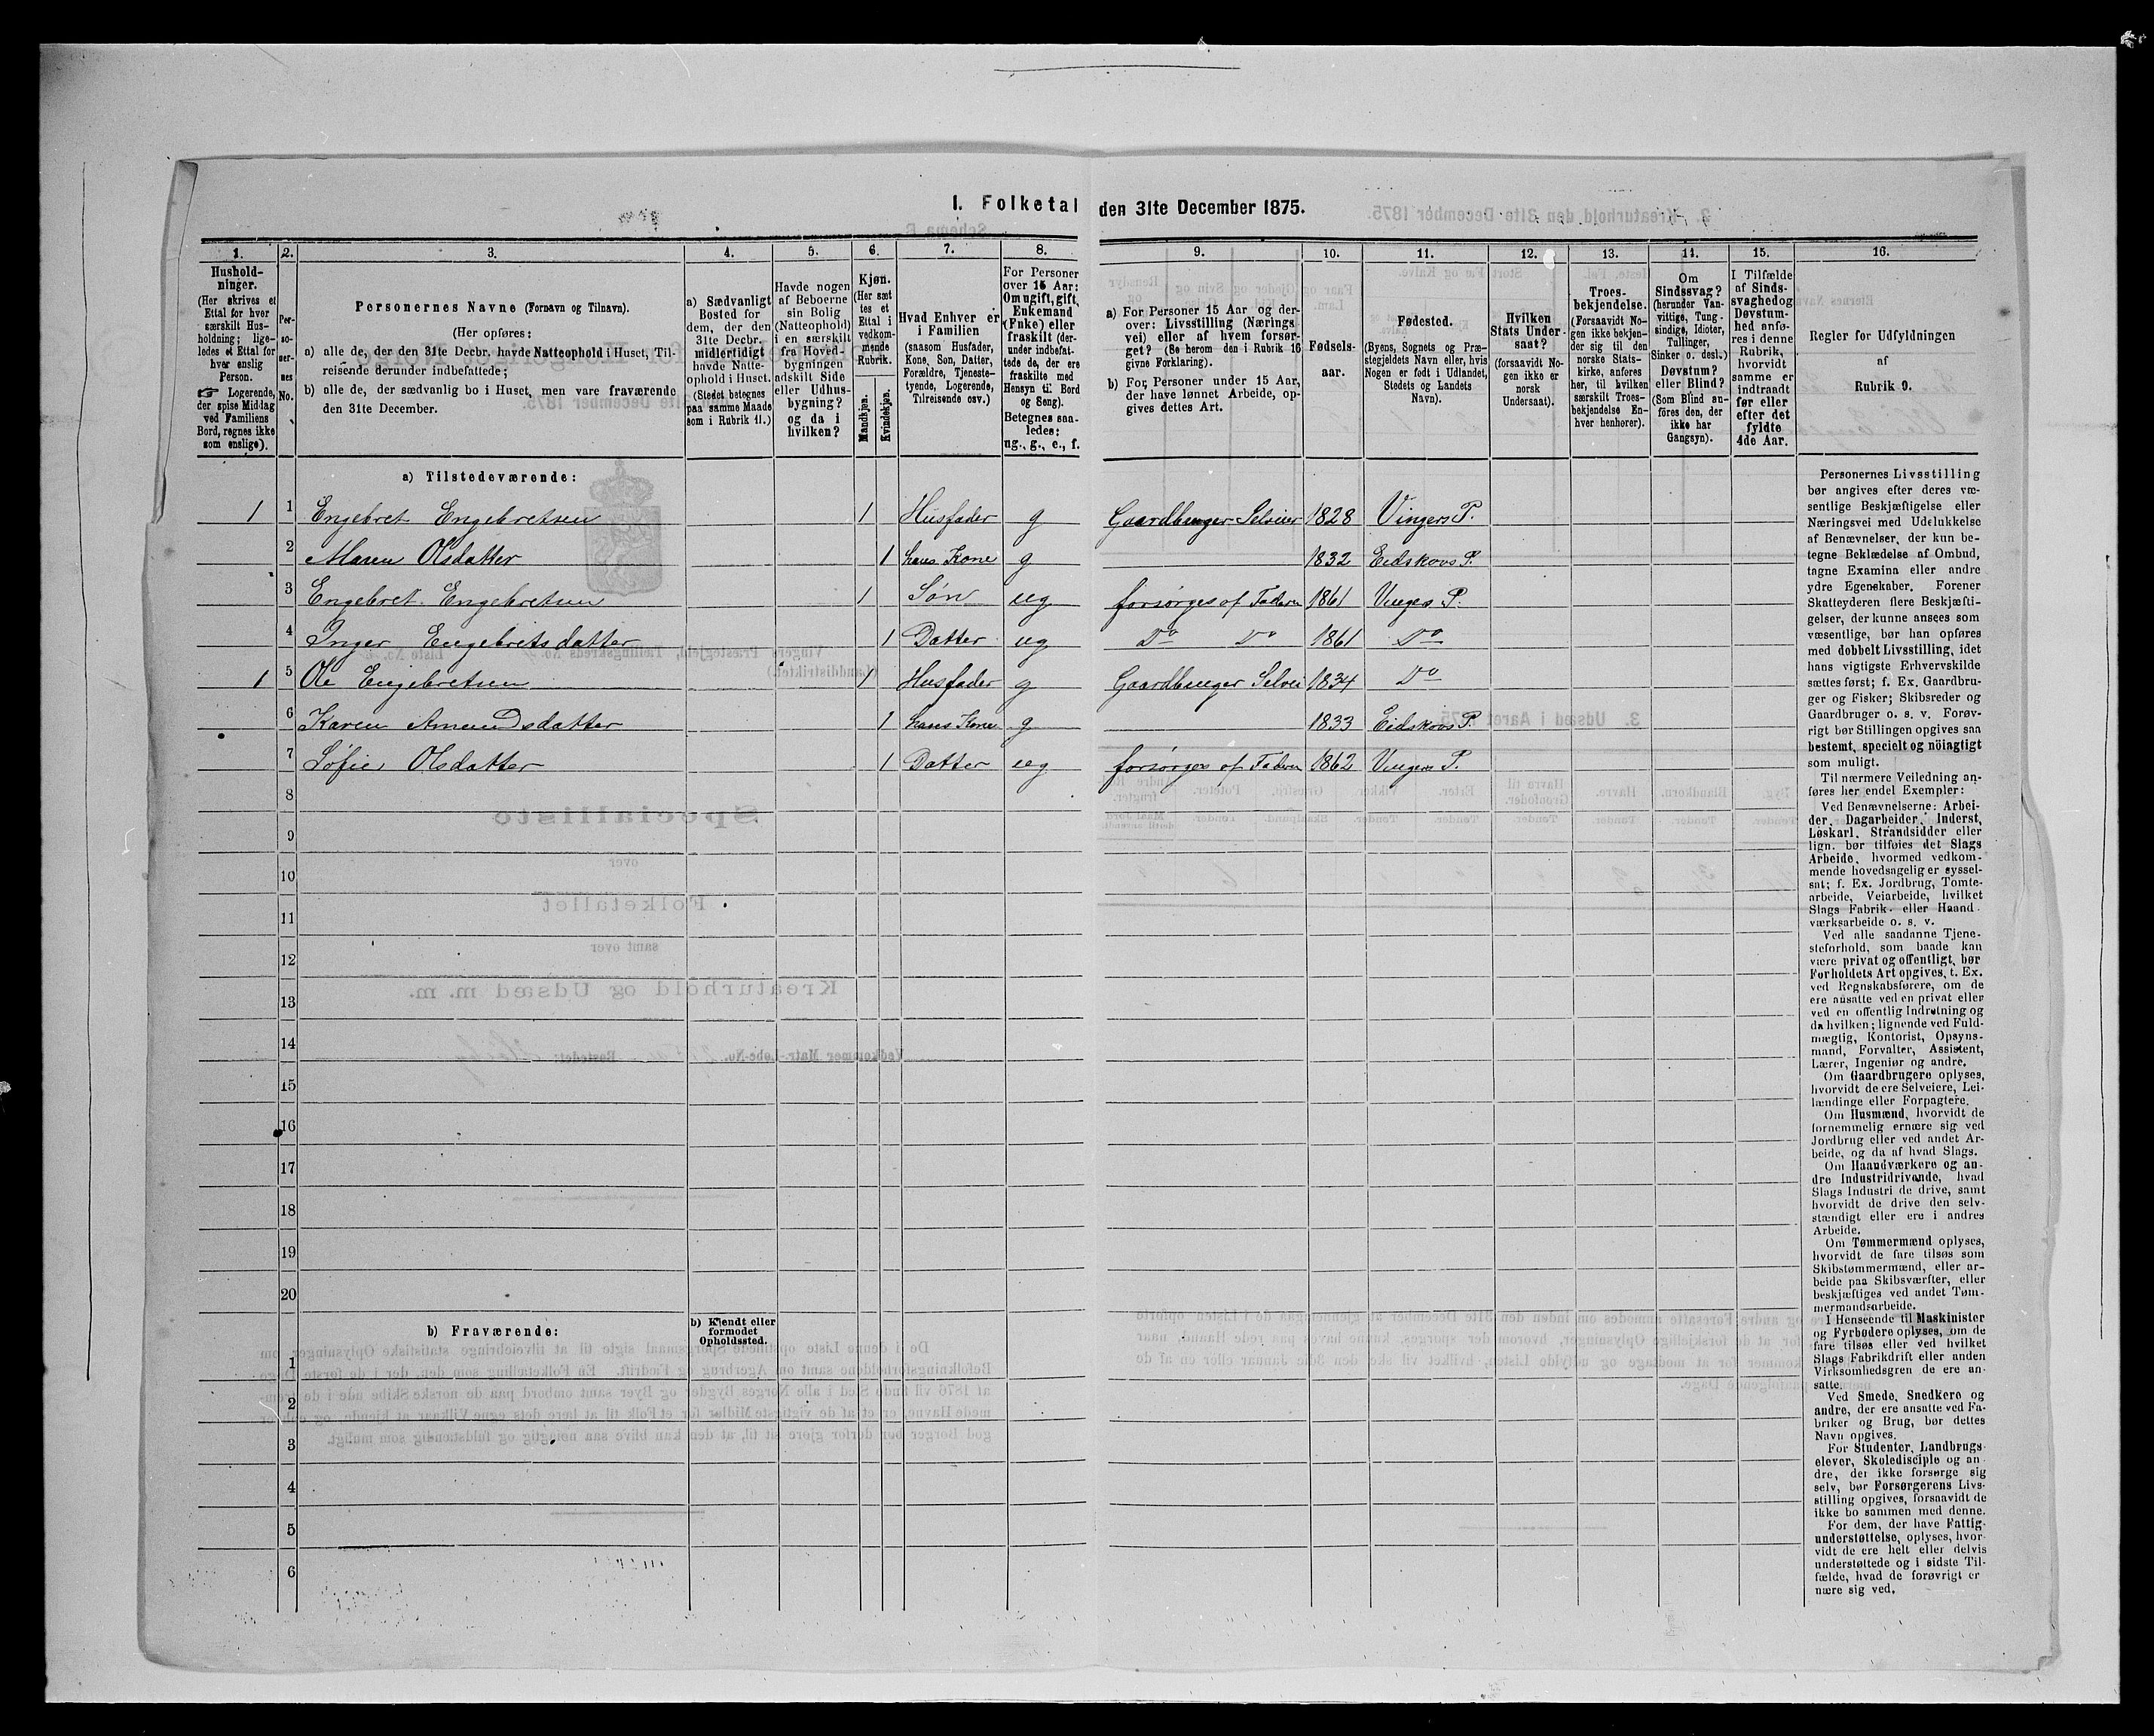 I. Folketal den 31te December 1875.
1. 2. 3. 4. 5. 6. 7. 8. 9. 10. 11. 12. 13. 14. 15. 16.
Hushold-
ninger.
(Her skrives et
Ettal for hver
særskilt Hus-
holdning; lige-
ledes et Ettal for
hver enslig
Person.
☞ Logerende,
der spise Middag
ved Familiens
Bord, regnes ikke
som enslige).
Per-
so-
ner-
nes
No.
Personernes Navne (Fornavn og Tilnavn).
(Her opføres:
a) alle de, der den 31te Decbr. havde Natteophold i Huset, Til-
reisende derunder indbefattede;
b) alle de, der sædvanlig bo i Huset, men vare fraværende
den 31te December.
a) Sædvanligt
Bosted for
dem, der den
31te Decbr.
midlertidigt
havde Natte-
ophold i Huset.
(Stedet betegnes
paa samme Maade
som i Rubrik 11.)
Havde nogen
af Beboerne
sin Bolig
(Natteophold)
i en særskilt
fra Hoved-
bygningen
adskilt Side
eller Udhus-
bygning?
og da i
hvilken?
Kjøn.
(Her sæt
tes et
Ettal i
vedkom-
mende
Rubrik.
Mandkjøn.
Kvindekjøn.
Hvad Enhver er
i Familien
(saasom Husfader,
Kone, Søn, Datter,
Forældre, Tjeneste-
tyende, Logerende,
Tilreisende osv.)
For Personer
over 15 Aar:
Om ugift, gift,
Enkemand
(Enke) eller
fraskilt (der-
under indbefat-
tede de, der ere
fraskilte med
Hensyn til Bord
og Seng).
Betegnes saa-
ledes:
ug., g., e., f.
a) For Personer 15 Aar og der-
over: Livsstilling (Nærings
vei) eller af hvem forsør-
get? (Se herom den i Rubrik 16
givne Forklaring).
b) For Personer under 15 Aar,
der have lønnet Arbeide, op-
gives dettes Art.
Fødsels-
aar.
Fødested.
(Byens, Sognets og Præ-
stegjeldets Navn eller, hvis
Nogen er født i Udlandet,
Stedets og Landets
Navn).
Hvilken
Stats Under-
saat?
(forsaavidt No-
gen ikke er
norsk
Undersaat).
Troes-
bekjendelse.
(Forsaavidt No-
gen ikke bekjen-
der sig til den
norske Stats-
kirke, anføres
her, til hvilken
særskilt Troes-
bekjendelse En-
hver henhører).
Om
Sindssvag?
(herunder Van-
vittige, Tung-
sindige, Idioter,
Tullinger,
Sinker o. desl.)
Døvstum?
eller Blind?
(Som Blind an-
föres den, der
ikke har
Gangsyn).
I Tilfælde
af Sinds-
svaghed og
Døvstum-
hed anfø-
res i denne
Rubrik,
hvorvidt
samme er
indtraadt
før eller
efter det
fyldte
4de Aar.
Regler for Udfyldningen
af
Rubrik 9.
a) Tilstedeværende:
1 1 Engebret Engebretsen 1 Husfader g Gaardbruger Selveier 1828 Vingers P.
2 Maren Olsdatter 1 hans Kone g 1832 Eidskovs P.
3 Engebret Engebretsen 1 Søn ug forsørges af Faderen 1861 Vingers P.
4 Inger Engebretsdatter 1 Datter ug Do Do 1861 Do
1 5 Ole Engebretsen 1 Husfader g Gaardbruger Selvei 1834 Do
6 Karen Amundsdatter 1 hans Kone g 1833 Eidskovs P.
7 Sofie Olsdatter 1 Datter ug forsørges af Faderen 1862 Vingers P.
8
9
10
11
12
13
14
15
16
17
18
19
20
b) Fraværende:
b) Kjendt eller
formodet
Opholdssted.
1
2
3
4
5
6
Personernes Livsstilling
bør angives efter deres væ-
sentlige Beskjæftigelse eller
Næringsvei med Udelukkelse
af Benævnelser, der kun be-
tegne Beklædelse af Ombud,
tagne Examina eller andre
ydre Egenskaber. Forener
Skatteyderen flere Beskjæfti-
gelser, der kunne ansees som
væsentlige, bør han opføres
med dobbelt Livsstilling, idet
hans vigtigste Erhvervskilde
sættes først; f. Ex. Gaardbru-
ger og Fisker; Skibsreder og
Gaardbruger o. s. v. Forøv-
rigt bør Stillingen opgives saa
bestemt, specielt og nöiagtigt
som muligt.
Til nærmere Veiledning an-
føres her endel Exempler:
Ved Benævnelserne: Arbei-
der, Dagarbeider, Inderst,
Løskarl, Strandsidder eller
lign. bør tilføies det Slags
Arbeide, hvormed vedkom-
mende hovedsagelig er syssel-
sat; f. Ex. Jordbrug, Tomte-
arbeide, Veiarbeide, hvilket
Slags Fabrik- eller Haand-
værksarbeide o. s. v.
Ved alle saadanne Tjene-
steforhold, som baade kan
være privat og offentligt, bør
Forholdets Art opgives, t. Ex.
ved Regnskabsførere, om de
ere ansatte ved en privat eller
ved en offentlig Indretning og
da hvilken; lignende ved Fuld-
mægtig, Kontorist, Opsyns-
mand, Forvalter, Assistent,
Lærer, Ingeniør og andre.
Om Gaardbrugere oplyses,
hvorvidt de ere Selveiere, Lei-
lændinge eller Forpagtere.
Om Husmænd, hvorvidt de
fornemmelig ernære sig ved
Jordbrug eller ved andet Ar-
beide, og da af hvad Slags.
Om Haandværkere og an-
dre Industridrivende, hvad
Slags Industri de drive, samt
hvorvidt de drive den selv-
stændigt eller ere i andres
Arbeide.
Om Tømmermænd oplyses,
hvorvidt de fare tilsøs som
Skibstømmermænd, eller ar-
beide paa Skibsværfter, eller
beskjæftiges ved andet Tøm-
mermandsarbeide.
I Henseende til Maskinister
og Fyrbødere oplyses, om de
fare tilsøs eller ved hvilket
Slags Fabrikdrift eller anden
Virksomhedsgren de ere an-
satte.
Ved Smede, Snedkere og
andre, der ere ansatte ved Fa-
briker og Brug, bør dettes
Navn opgives.
For Studenter, Landbrugs-
elever, Skoledisciple og an-
dre, der ikke forsørge sig
selv, bør Forsørgerens Livs-
stilling opgives, forsaavidt de
ikke bo sammen med denne.
For dem, der have Fattig-
understøttelse, oplyses, hvor-
vidt de ere helt eller delvis
understøttede og i sidste Til-
fælde, hvad de forøvrigt er
nære sig ved.